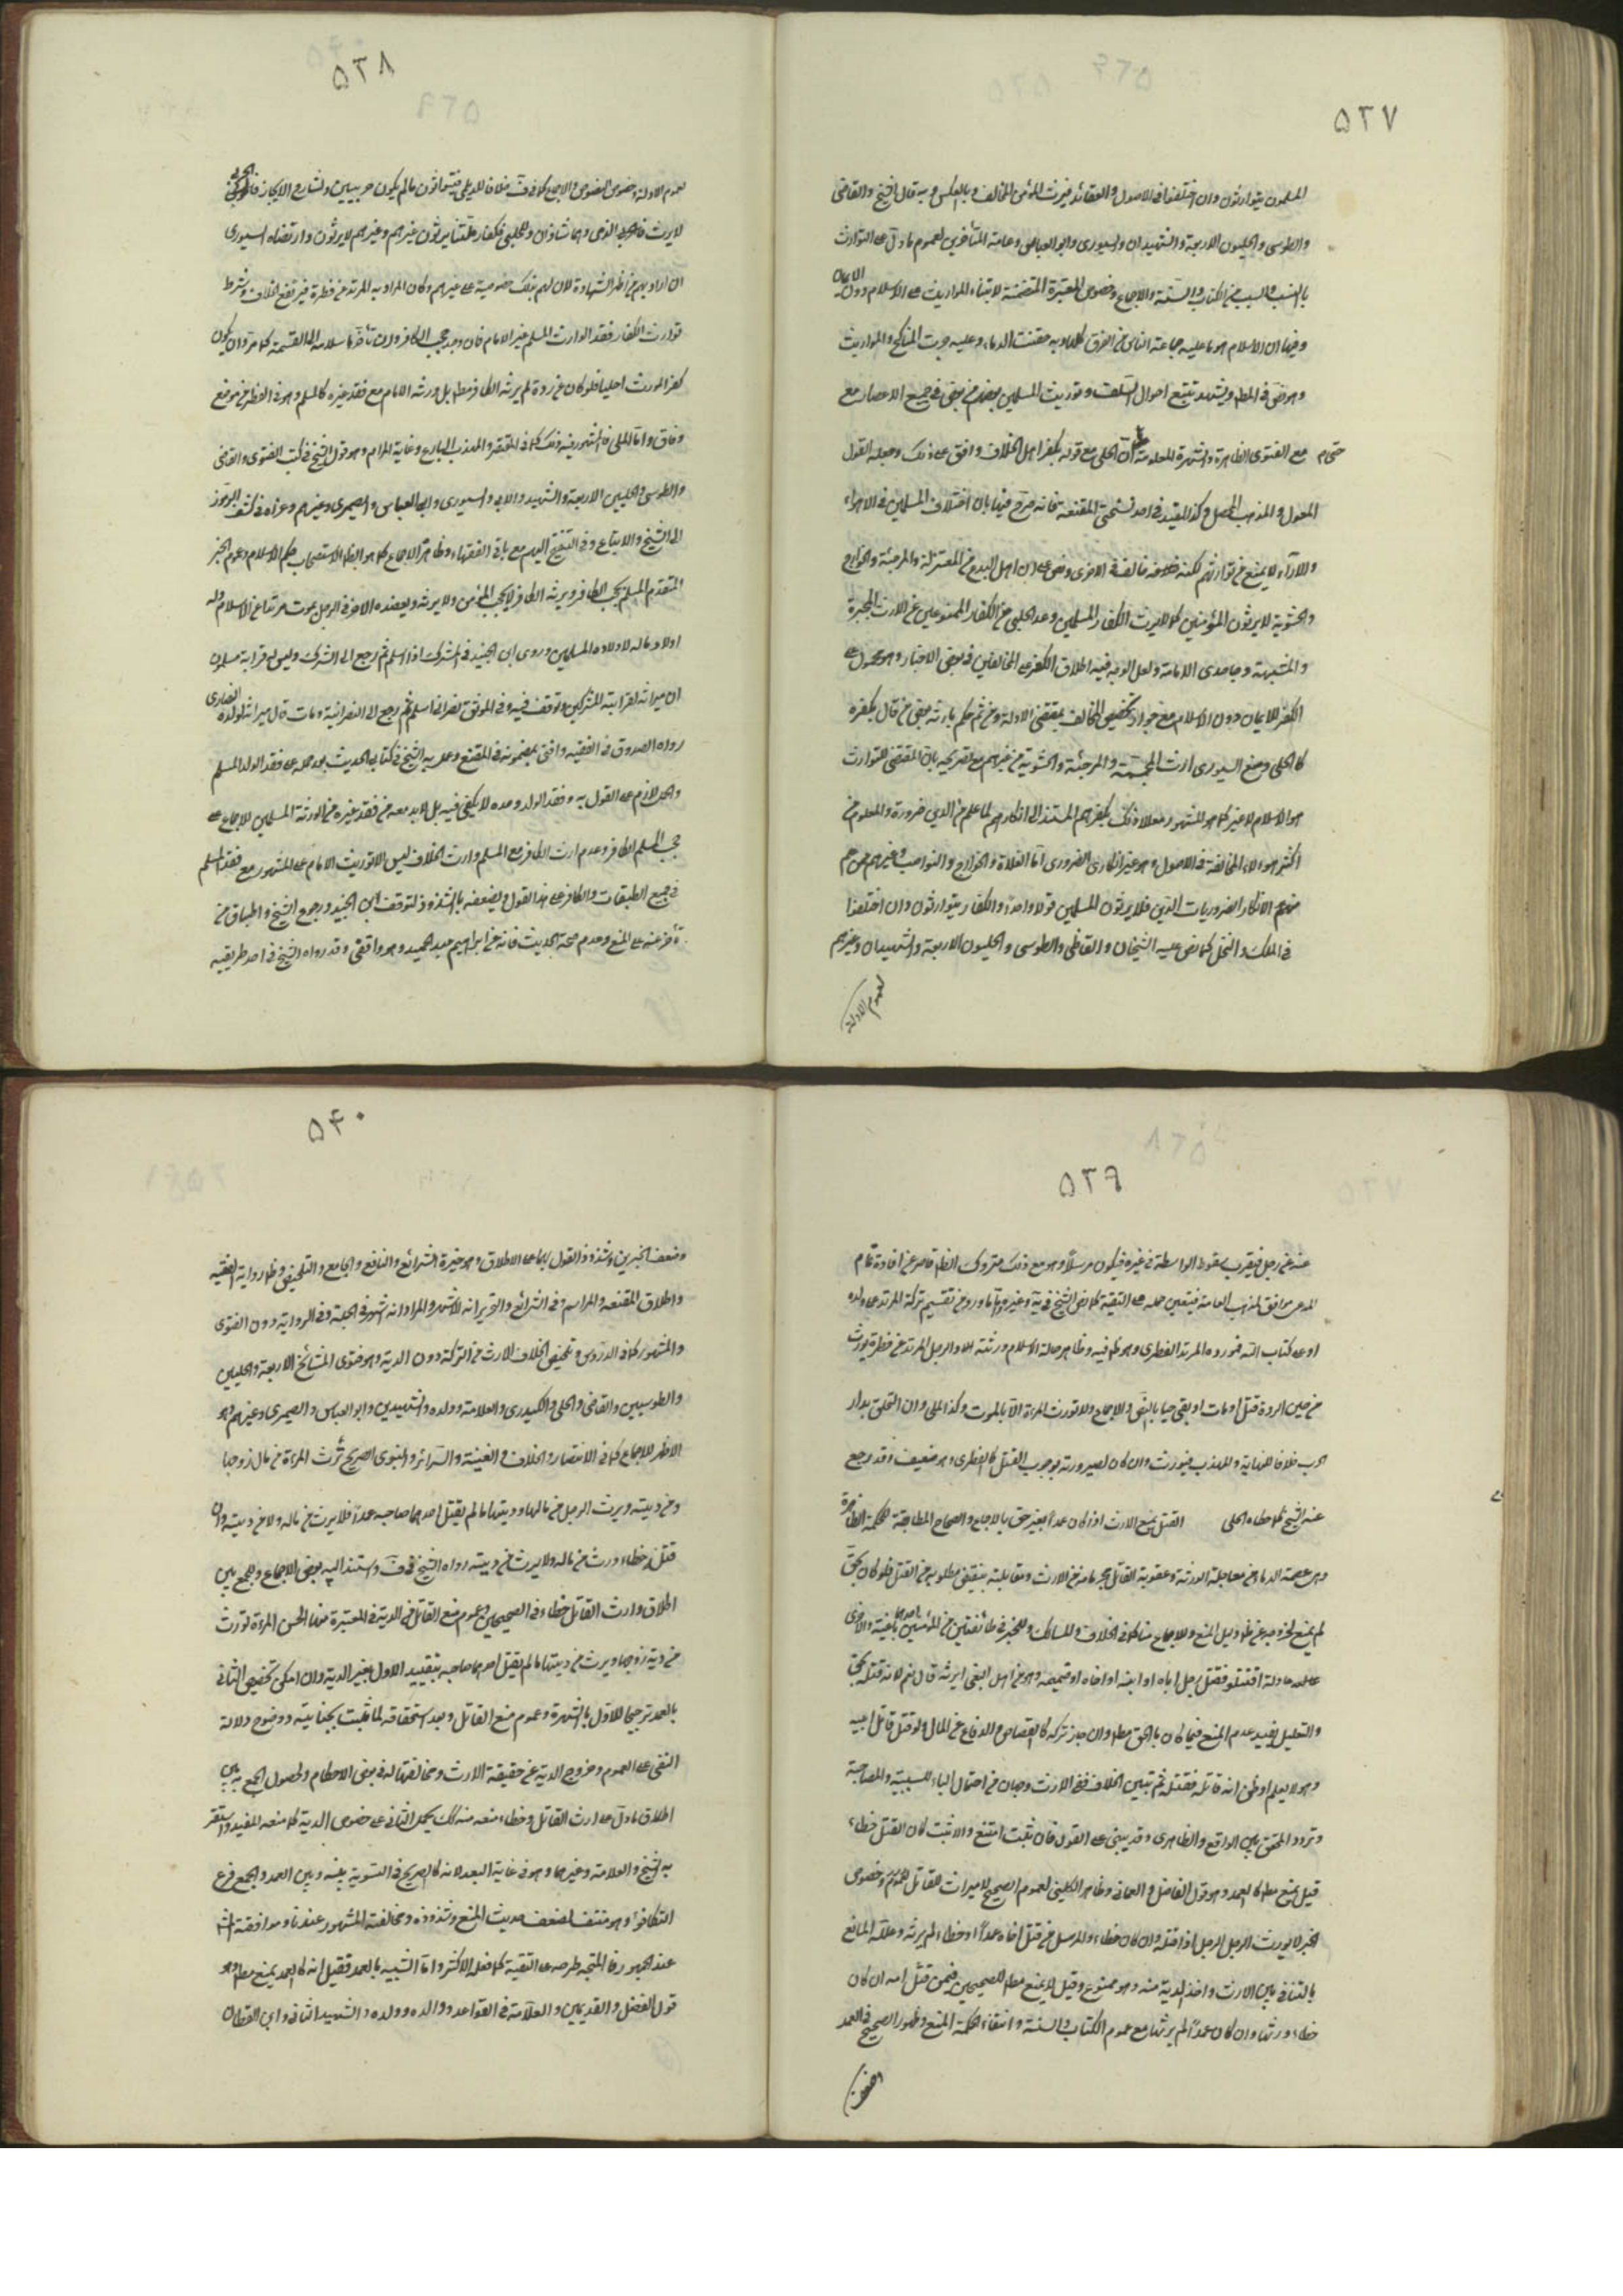 ٥٣٧
المسلمون يتوارثون وان اختلفوا في الاصول والعقائد فيرث المؤمن المخالف وبالعكس وبه قال الشيخ والقاضي
والطوسي والحليون الاربعة والشهيدان والسيوري وابو العباس وعامة المتأخرين لعموم ما دل على التوارث
بالنسب والسبب من الكتاب والسنة والاجماع وخصوص المعتبرة المتضمنة لابتناء المواريث على الاسلام دون الايمان
وفيها ان الاسلام هو ما عليه جماعة الناس من الفرق كلها وبه حقنت الدماء وعليه جرت المناكح والمواريث
وهو نص في المط ويشهد تتبع احوال السلف وتوريث المسلمين بعضهم من بعض في جميع الاعصار مع
مع الفتوى الظاهرة والشهرة المعلومة حتى ان الحلي مع قوله بكفر اهل الخلاف وافق على ذلك وجعله القول
المعول والمذهب المحصل وكذا المفيد في احد نسختي المقنعة فانه صرح فيها بان اختلاف المسلمين في الاهواء
والآراء لا يمنع من توارثهم لكنه خالفه في الاخرى ونص على ان اهل البدع من المعتزلة والمرجئة والخوارج
والحشوية لا يرثون المؤمنين كما لا يرث الكفار المسلمين وعد الحلبي من الكفار الممنوعين عن الارث المجبرة
والمشبهة وجاحدي الامامة ولعل الوجه فيه اطلاق الكفر على المخالفين في بعض الاخبار وهو محمول على
الكفر للايمان دون الاسلام مع جواز تخصيص المخالف بمقتضى الادلة ومن ثم حكم بارثه بعض من قال بكفره
كالحلي ومنع السيوري ارث المجسمة والمرجئة والحشوية من غيرهم مع تصريحه بان المقتضى للتوارث
هو الاسلام لا غير كما هو المشهور معللا ذلك بكفرهم المستند الى انكارهم لما علم من الدين ضرورة والمعلوم من
اكثر هؤلاء المخالفة في الاصول وهو غير انكاري الضروري اما الغلاة والخوارج والنواصب وغيرهم ممن علم
منهم الانكار لضروريات الدين فلا يرثون المسلمين قولا واحدا والكفار يتوارثون وان اختلفوا
في الملل والنحل كما نص عليه الشيخان والقاضي والطوسي والحليون الاربعة والشهيدان وغيرهم
لعموم الادلة
٥٣٨
لعموم الادلة وخصوص النصوص والاجماع كما في ف خلافا للديلمي فيتوارثون ما لم يكونوا حربيين
لا يرث من الذمي وللحلبي فكفار ملتنا يرثون غيرهم وغيرهم لا يرثون وارتضاه السيوري
ان اراد بهم من اظهر الشهادة لان لهم بذلك خصوصية على غيرهم وكان المراد به المرتد عن فطرة فيرتفع الخلاف ويشرط
توارث الكفار فقد الوارث المسلم غير الامام فان وجد حجب الكافر وان تأخر اسلامه الى القسمة كما مر وان يكون
كفر المورث اصليا فلو كان عن ردة لم يرثه الكافر مط بل ورثه الامام مع فقد غيره كالمسلم وهو في الفطري موضع
وفاق واما الملي فالمشهور فيه ذلك كما في المقتصر والمهذب البارع وغاية المرام وهو قول الشيخ في كتب الفتوى والقاضي
والطوسي والحليين الاربعة والشهيد والسيوري وابي العباس والصيمري وغيرهم وعزاه في كشف الرموز
الى الشيخ والاتباع وفي التنقيح اليهم مع باقي الفقهاء وظاهره الاجماع كما هو الظ لاستصحاب حكم الاسلام وعموم الخبر
المتقدم المسلم يحجب الكافر ويرثه الكافر لا يحجب المؤمن ولا يرثه ويعضده الاخر في الرجل يموت مرتدا عن الاسلام وله
اولاد ماله لاولاده المسلمين وروى ابن الجنيد في المشرك اذا اسلم ثم رجع الى الشرك وليس له قرابة مسلمون
ان ميراثه لقرابته المشركين وتوقف فيه وفي الموثق نصراني اسلم ثم رجع الى النصرانية ومات قال ميراثه لولده النصارى
رواه الصدوق في الفقيه وافتى بمضمونه في المقنع وعمل به الشيخ في كتابي الحديث بعد حمله على فقد الولد المسلم
والحمل لازم على القول به وفقد الولد وحده لا يكفي فيه بل لابد معه من فقد غيره من الورثة المسلمين للاجماع على
حجب المسلم الكافر وعدم ارث الكافر مع المسلم وارث الخلاف ليس الا توريث الامام على المشهور مع فقد المسلم
في جميع الطبقات والكافر على هذا القول ويضعفه بالشذوذ لتوقف ابن الجنيد ورجوع الشيخ واطباق من
تأخر عنه على المنع وعدم صحة الحديث فانه عن ابراهيم بن عبد الحميد وهو واقفي وقد رواه الشيخ في احد طريقيه
٥٣٩
عنه عن رجل فيقرب سقوط الواسطة في غيره فيكون مرسلا وهو مع ذلك متروك الظ قاصر عن افادة تمام
المدعى موافق لمذهب العامة فيتعين حمله على التقية كما نص الشيخ في يه وغيره واما ما ورد من تقسيم تركة المرتد على ولده
او على كتاب الله فمورده المرتد الفطري وهو كما فيه وظاهر حالة الاسلام ورثته والرجل المرتد عن فطرة يورث
من حين الردة قتل او مات او بقي حيا بالنص والاجماع ولا تورث المرأة الا بالموت وكذا الملي وان التحق بدار
الحرب خلافا للنهاية والمهذب فيورث وان كان لصيرورته بوجوب القتل كالفطري وهو ضعيف وقد رجع
عنه الشيخ كما حكاه الحلي القتل يمنع الارث اذا كان عمدا بغير حق بالاجماع والصحاح المطابقة للحكمة الظاهرة
وهي عصمة الدماء من معاجلة الورثة وعقوبة القاتل بحرمانه من الارث ومقابلته بنقيض مطلوبه من القتل فلو كان بحق
لم يمنع لخروجه عن ظ دليل المنع وللاجماع هنا كما في الخلاف والمسالك وللخبر في طائفتين من المؤمنين احدهما باغية والاخرى
عادلة اقتتلوا فقتل رجل اباه او ابنه او اخاه او حميمه وهو من اهل البغي ايرثه قال نعم لانه قتله بحق
والتعليل يفيد عدم المنع فيما كان بالحق مطا وان جاز تركه كالقصاص والدفاع عن المال ولو قتل قاتل ابيه
وهو لا يعلم او ظن انه قاتله فقتله ثم تبين الخلاف ففي الارث وجهان من احتمال الباء للسببية والمصاحبة
وتردد المحقق بين الواقع والظاهري وقد يبنى على القول فان ثبت امتنع والا ثبت وان كان القتل خطاء
قيل يمنع مط كالعمد وهو قول الفاضل والعماني وظاهر الكليني لعموم الصحيح لا ميراث للقاتل وخصوص
الخبر لا يورث الرجل الرجل اذا قتله وان كان خطاء والمرسل فيمن قتل اخاه عمدا او خطاء لم يرثه وعلله المانع
بالتنافي بين الارث واخذ الدية منه وهو ممنوع وقيل لا يمنع مط للصحيحين فيمن قتل امه ان كان
خطاء ورثها وان كان عمدا لم يرثها مع عموم الكتاب والسنة وانتفاء حكمة المنع وظهور الصحيح في العمد
وضعف
٥٤٠
وضعف الخبرين وشذوذ القول بهما على الاطلاق وهو خيرة الشرائع والنافع والجامع والتلخيص وظ رواية الفقيه
واطلاق المقنعة والمراسم وفي الشرائع والتحرير انه الاشهر والمراد انه اشهر في الجملة وفي الرواية دون الفتوى
والمشهور كما في الدروس وتلخيص الخلاف الارث من التركة دون الدية وهو فتوى المشائخ الاربعة والحلبيين
والطوسيين والقاضي والحلي والكيدري والعلامة وولده والشهيدين وابو العباس والصيمري وغيرهم وهو
الاظهر للاجماع كما في الانتصار والخلاف والغنية والسرائر والنبوي الصريح ترث المراة من مال زوجها
ومن ديته ويرث الرجل من مالها وديتها ما لم يقتل احدهما صاحبه عمدا فلا يرث من ماله ولا من ديته وان
قتله خطاء ورث من ماله ولا يرث من ديته رواه الشيخ في ف واستند اليه بعض الاجماع والجمع بين
اطلاق وارث القاتل خطاء في الصحيحين وعموم منع القاتل من الدية في المعتبرة منها الحسن المراة تورث
من دية زوجها ويرث من ديتها ما لم يقتل احدهما صاحبه بتقييد الاول بغير الدية وان امكن تخصيص الثاني
بالعمد ترجيحا للاول بالشهرة وعموم منع القاتل وبعد استحقاقه لما ثبت بجنايته ووضوح دلالة
النفي على العموم وخروج الدية عن حقيقة الارث ومخالفتها له في بعض الاحكام ولحصول الجمع به بين
اطلاق ما دل على ارث القاتل وخطاء منعه منه لك بحمل الثاني على خصوص الدية كما منعه المفيد واستقر
به الشيخ والعلامة وغيرهما وهو في غاية البعد لانه كالصريح في التسوية بينه وبين العمد والجمع فرع
التكافؤ وهو منتف لضعف حديث المنع وشذوذه ومخالفته المشهور عندنا وموافقته المش
عند الجمهور فالمتجه طرحه على التقية كما فعله الاكثر واما الشبيه بالعمد فقيل انه كالعمد يمنع مط وهو
قول الفضل والقديمين والعلامة في القواعد ووالده وولده والشهيد الثاني وابن القطان